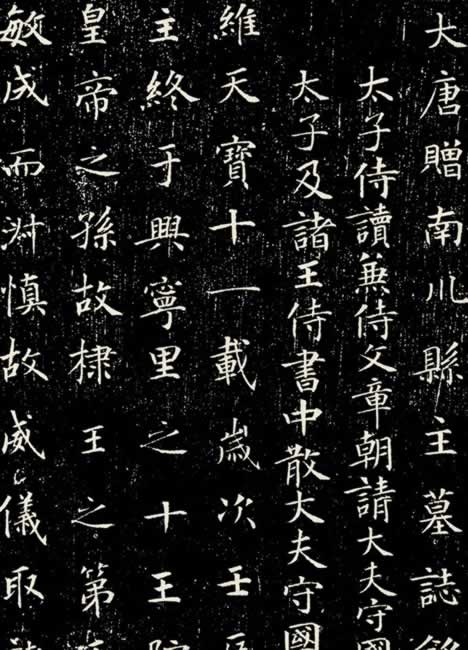 大唐贈南川縣主墓誌
太子侍讀兼侍文章朝請大夫守國
太子及諸王侍書中散大夫守國
維天寶十一載歲次壬辰
主終于興寧里之十王院
皇帝之孫故棣王之第
敏成而淑慎故威儀取